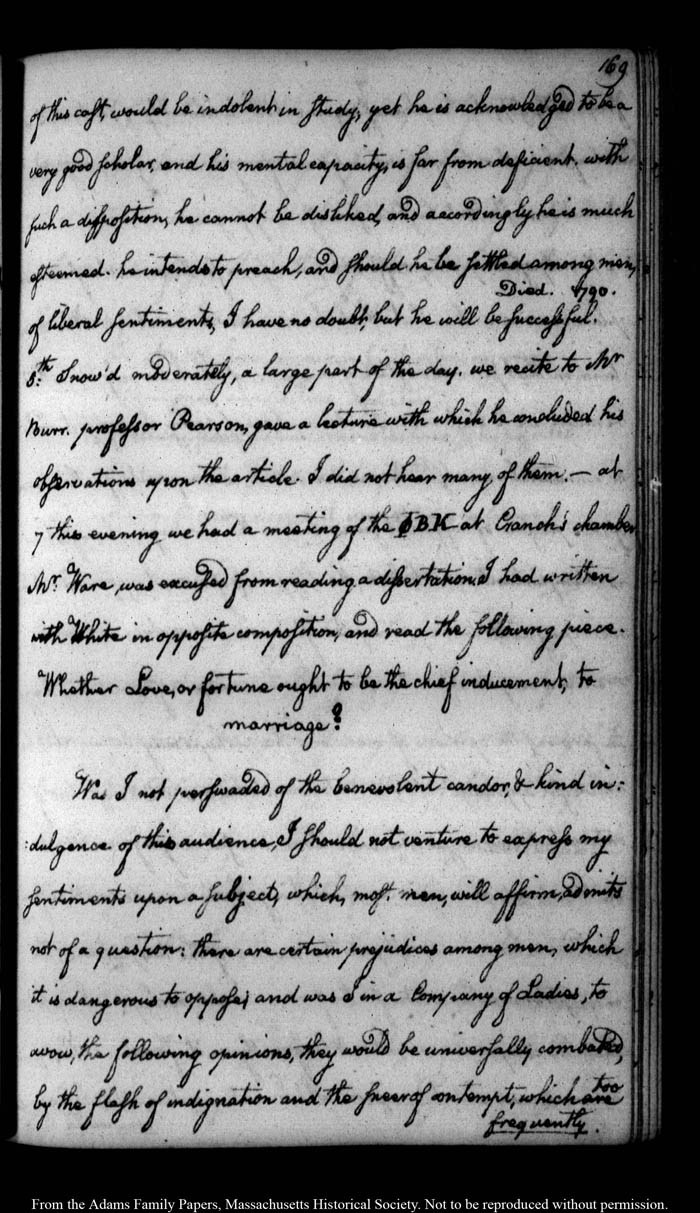 169
of this cast, would be indolent in study, yet he is acknowledged to be a
very good scholar, and his mental capacity, is far from deficient. with
such a disposition, he cannot be disliked, and accordingly he is much
esteemed. he intends to preach, and should he be settled among men,
Died. 1790.
of liberal sentiments, I have no doubt, but he will be successful.
5:th Snow'd moderately, a large part of the day. we recite to Mr
Burr. professor Pearson, gave a lecture with which he concluded his
observations upon the article. I did not hear many, of them. — at
7 this evening we had a meeting of the ΦBK at Cranch's chamber
Mr. Ware, was excused from reading a dissertation. I had written
with White in opposite composition, and read the following piece.
Whether Love, or fortune ought to be the chief inducement, to
marriage?
Was I not perswaded of the benevolent candor, & kind in:
:dulgence of this audience, I should not venture to express my
sentiments upon a subject, which, most. men, will affirm, admits
not of a question: there are certain prejudices among men, which
it is dangerous to oppose; and was I in a Company of Ladies, to
avow, the following opinions, they would be universally combated,
by the flash of indignation and the sneer of contempt, which are too
frequently.
From the Adams Family Papers, Massachusetts Historical Society. Not to be reproduced without permission.